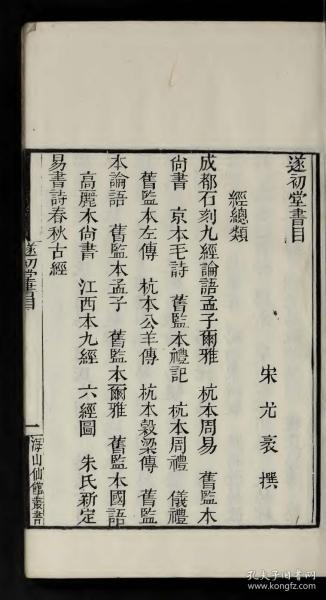 遂初堂書目
宋 尤袤 撰
經總類
成都石刻九經論語孟子爾雅 杭本周易 舊監本
尚書 京本毛詩 舊監本禮記 杭本周禮 儀禮
舊監本左傳 杭本公羊傳 杭本穀梁傳 舊監
本論語 舊監本孟子 舊監本爾雅 舊監本國語
高麗本尚書 江西本九經 六經圖 朱氏新定
易書詩春秋古經
遂初堂書目
一
海山仙館叢書
孔夫子旧书网
www.kongfz.com